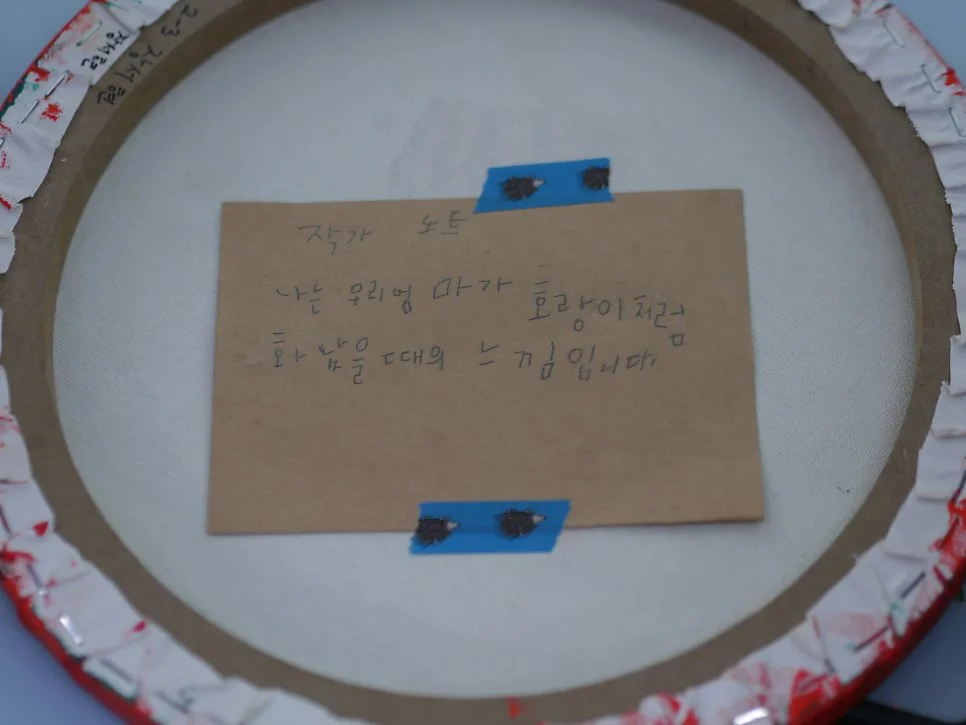 2-3 강서흔
강서흔
작가 노트
나는 우리엄마가 호랑이처럼
화났을때의 느낌입니다